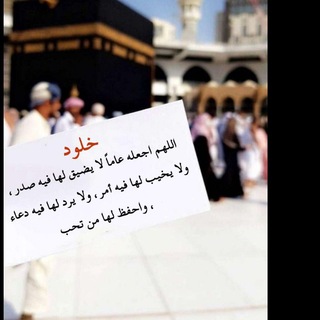 خلود
اللهم اجعله عاماً لا يضيق لها فيه صدر ،
ولا يخيب لها فيه أمر ، ولا يرد لها فيه دعاء
، واحفظ لها من تحب